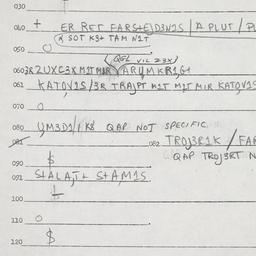 030
040 + ER RET FARS+EJD3N1S / A PLUT / PL
* SOT K3+ TAM N1T
050
QGL VIL Z3X
060 3R ZUXC3X M1T M1R YARUMKR1G+
061 KATOV1S / 3R TRAJPT M1T M1T M1R KATOV1S
070 O
080 UM3D1 / 1 K8 QAP NOT SPECIFIC.
081 082 TROJ3R1K / FAR
QAP TROJ3RT N
090 $
091 S+ALAT+ S+AM1S
+
100
110 O
120 $